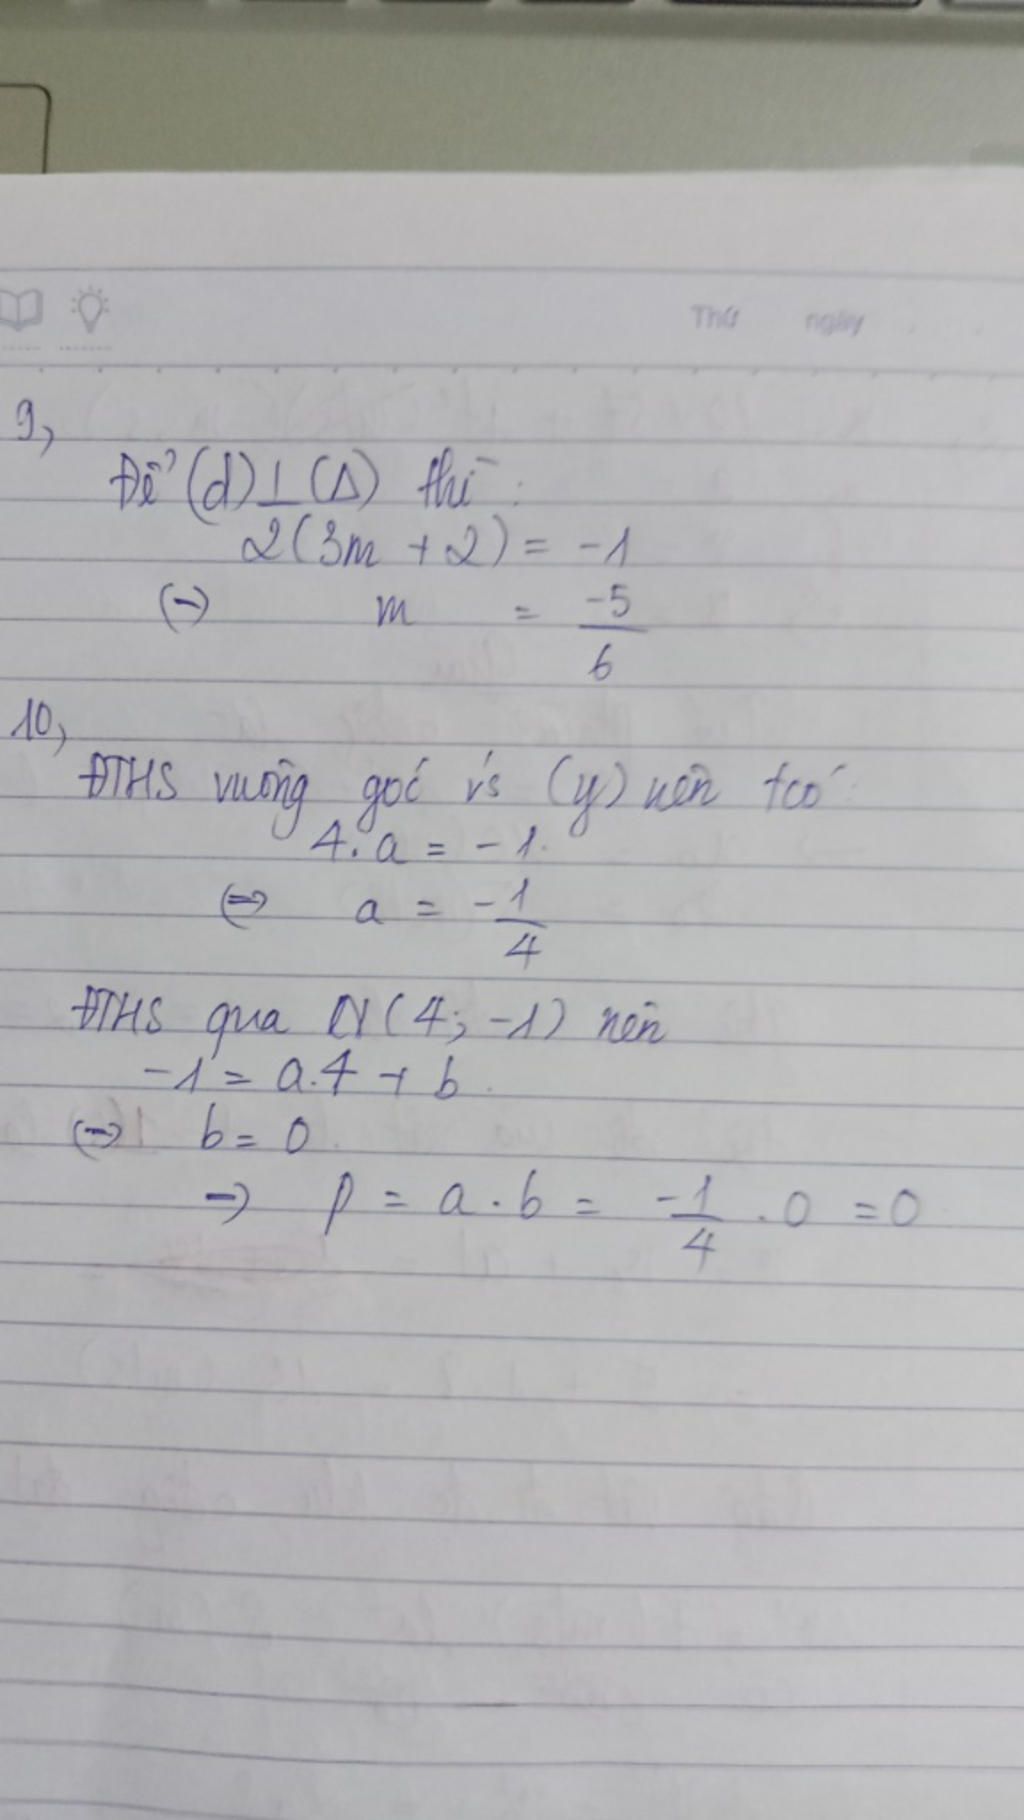 Thứ ngày
9,
Để (d) ⊥ (Δ) thì :
2(3m + 2) = -1
(->) m = -5/6
10,
ĐTHS vuông góc vs (y) nên tcó :
4. a = -1.
<=> a = -1/4
ĐTHS qua N(4; -1) nên
-1 = a.4 + b.
(->) b = 0.
-> P = a . b = -1/4 . 0 = 0